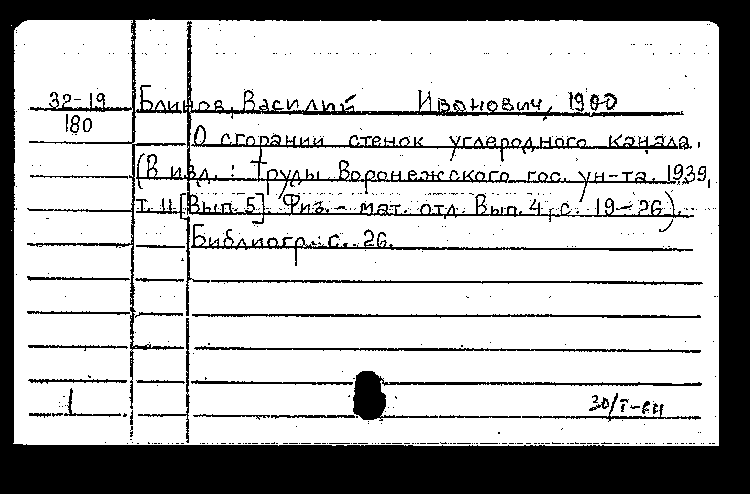 32-19 Блинов, Василий Иванович, 1900
180
О сгорании стенок углеродного канала.
(В изд.: Труды Воронежского гос. ун-та. 1939,
т. 11 [Вып. 5]. Физ.-мат. отд. Вып. 4, с. 19-26).
Библиогр.: с. 26.
1